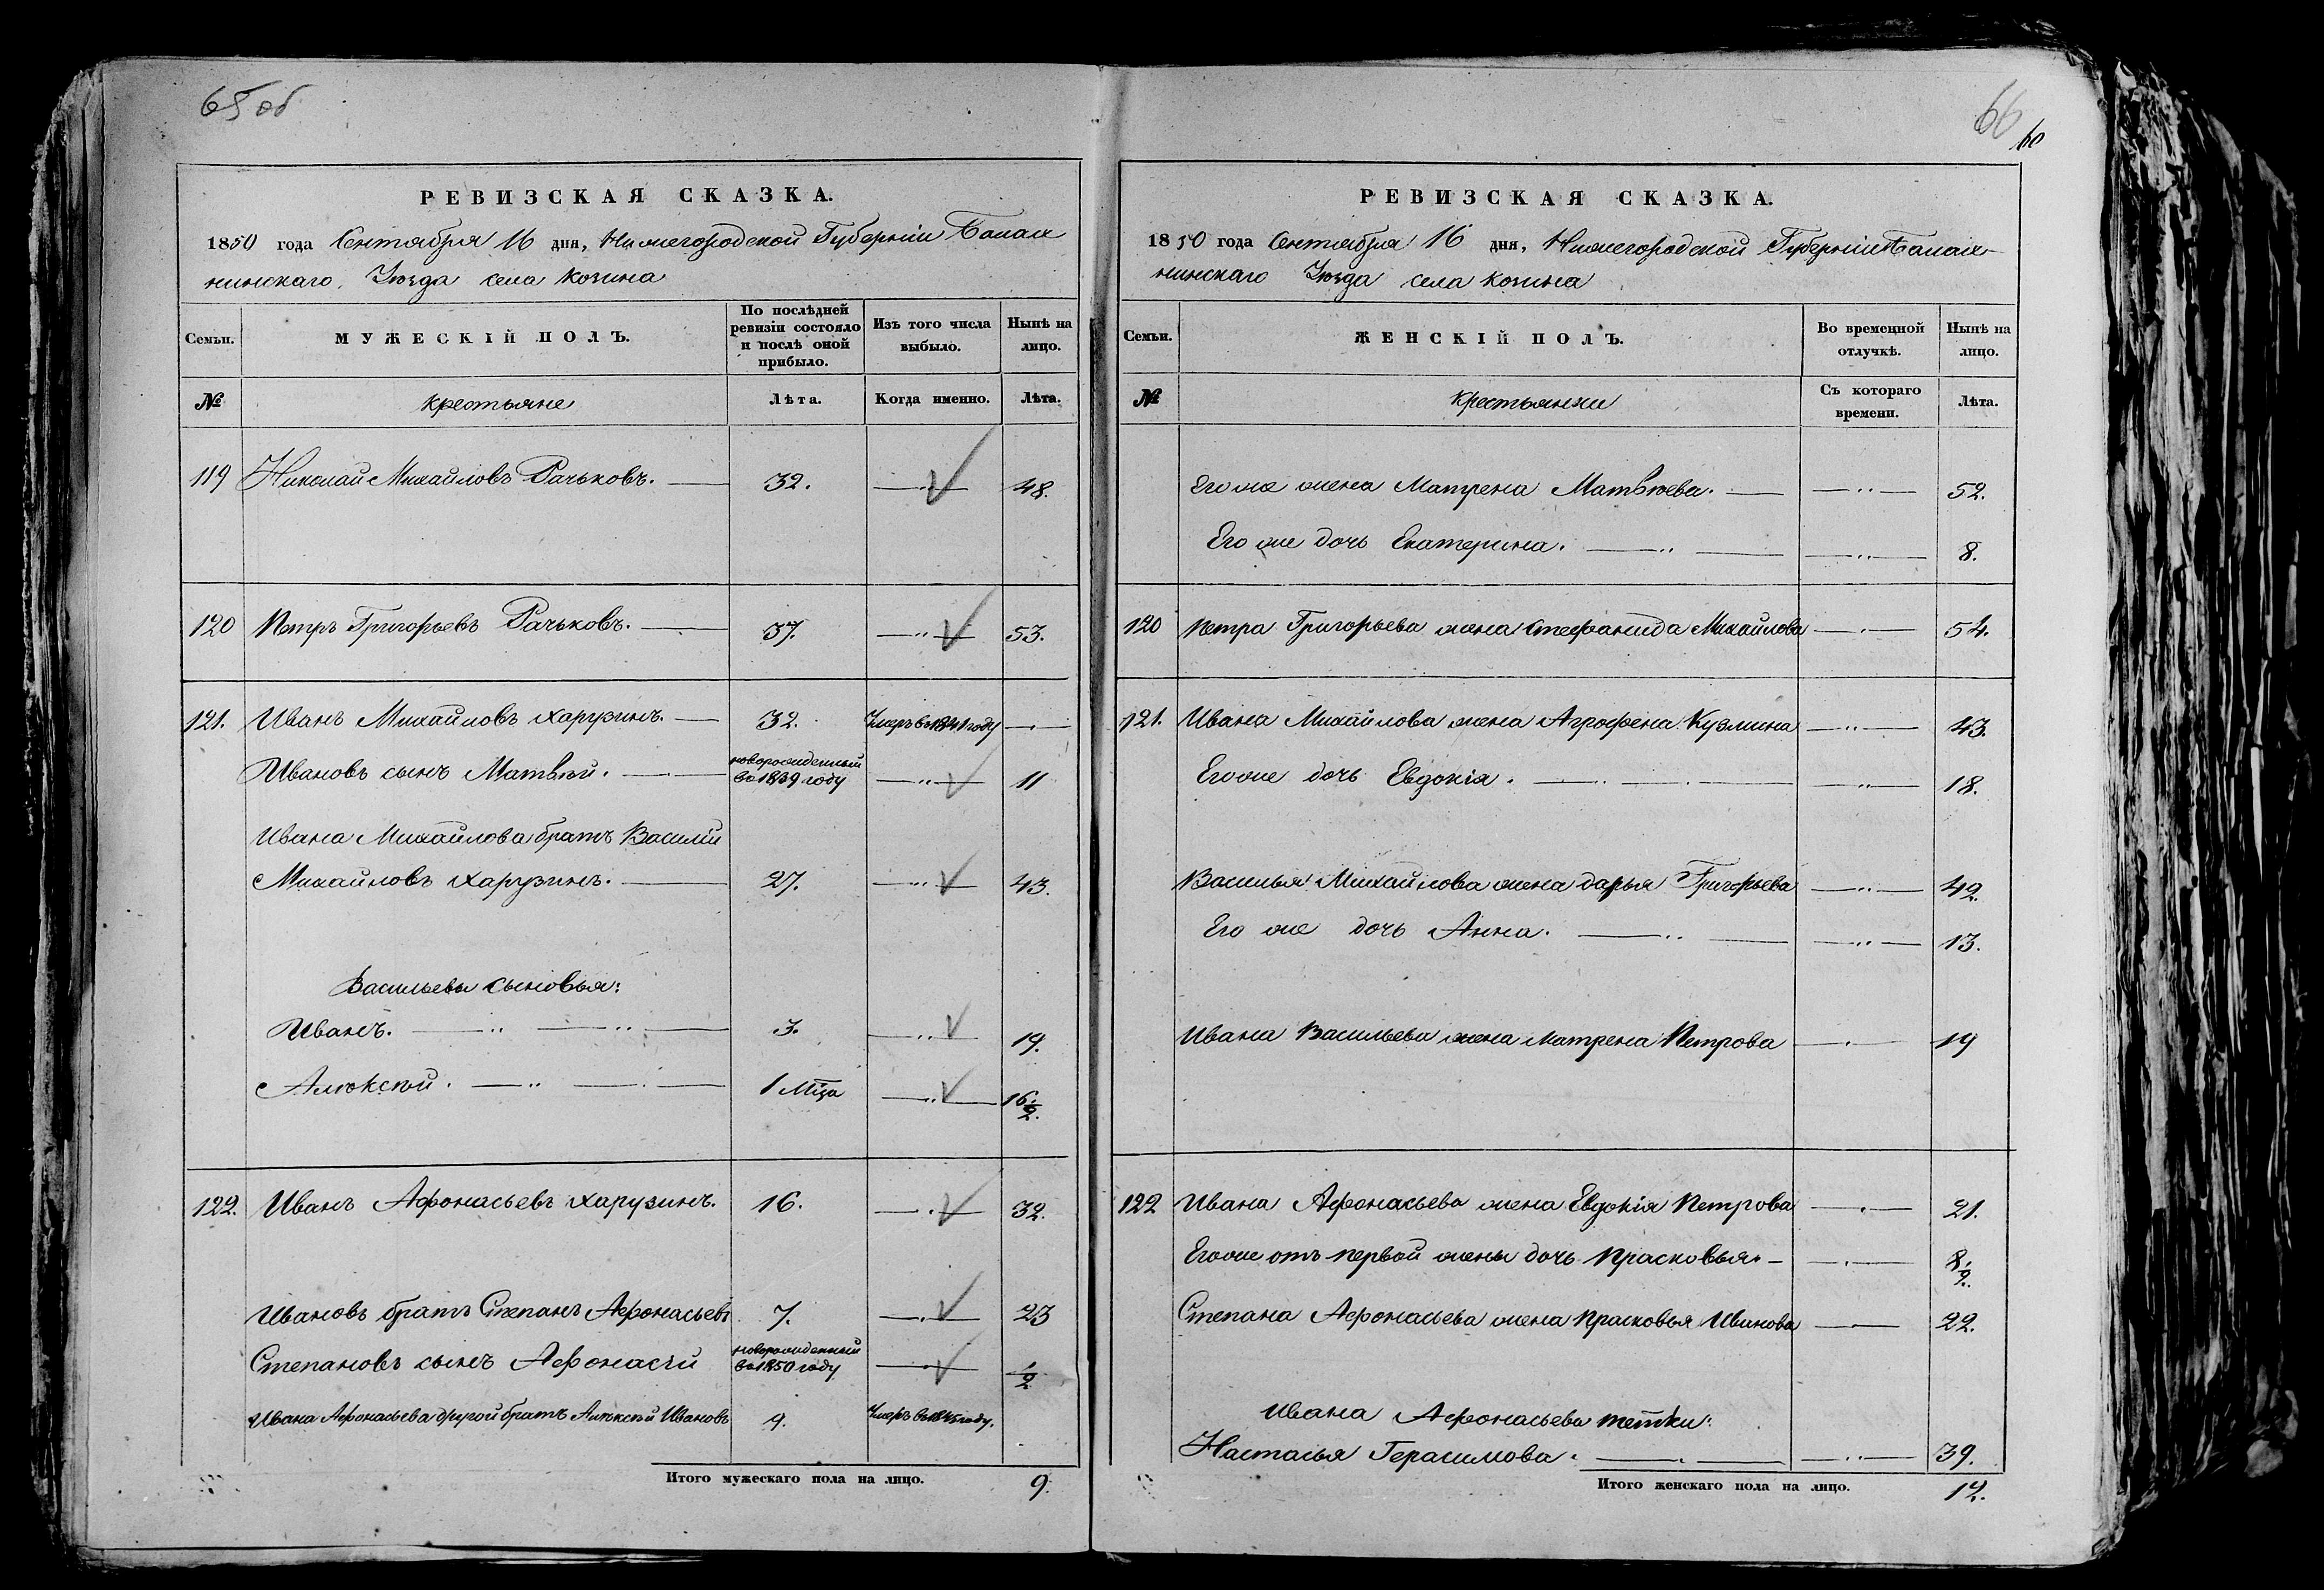 65 об
РЕВИЗСКАЯ СКАЗКА.
1850 года Сентября 16 дня, Нижегородской Губерніи Балах
нинскаго Уѣзда села Козина
Семьи.
МУЖЕСКІЙ ПОЛЪ.
По послѣдней ревизіи состояло и послѣ оной прибыло.
Изъ того числа выбыло.
Нынѣ на лицо.
№ крестьяне Лѣта. Когда именно. Лѣта.
119 Николай Михайловъ Рачьковъ. 32. 48.
120 Петръ Григорьевъ Рачьковъ. 37. 53.
121. Иванъ Михайловъ Харузинъ. 32. Умеръ въ 1841 году
Ивановъ сынъ Матвѣй. новорожденный въ 1839 году 11
Ивана Михайлова братъ Василій
Михайловъ Харузинъ. 27. 43.
Васильевы сыновья:
Иванъ. 3. 19.
Алѣксѣй. 1 Мца 16 1/2.
122. Иванъ Афонасьевъ Харузинъ. 16. 32.
Ивановъ братъ Степанъ Афонасьевъ 7. 23
Степановъ сынъ Афонасій новорожденный въ 1850 году 1/2
Ивана Афонасьева другой братъ Алѣксѣй Ивановъ 9. Умеръ въ 1845 году.
Итого мужескаго пола на лицо. 9.
66
60
РЕВИЗСКАЯ СКАЗКА.
1850 года Сентября 16 дня, Нижегородской Губерніи Балах-
нинскаго Уѣзда села Козина
Семьи.
ЖЕНСКІЙ ПОЛЪ.
Во временной отлучкѣ.
Нынѣ на лицо.
№ Крестьянки Съ котораго времени. Лѣта.
Его же жена Матрена Матвѣева. 52.
Его же дочь Екатерина. 8.
120 Петра Григорьева жена Стефанида Михайлова 54.
121. Ивана Михайлова жена Агрофена Кузмина 43.
Его же дочь Евдокія. 18.
Василья Михайлова жена Дарья Григорьева 42.
Его же дочь Анна. 13.
Ивана Васильева жена Матрена Петрова 19
122 Ивана Афонасьева жена Евдокія Петрова 21.
Его же отъ первой жены дочь Прасковья. 8 1/2.
Степана Афонасьева жена Прасковья Иванова 22.
Ивана Афонасьева тетки:
Настасья Герасимова. 39.
Итого женскаго пола на лицо. 12.